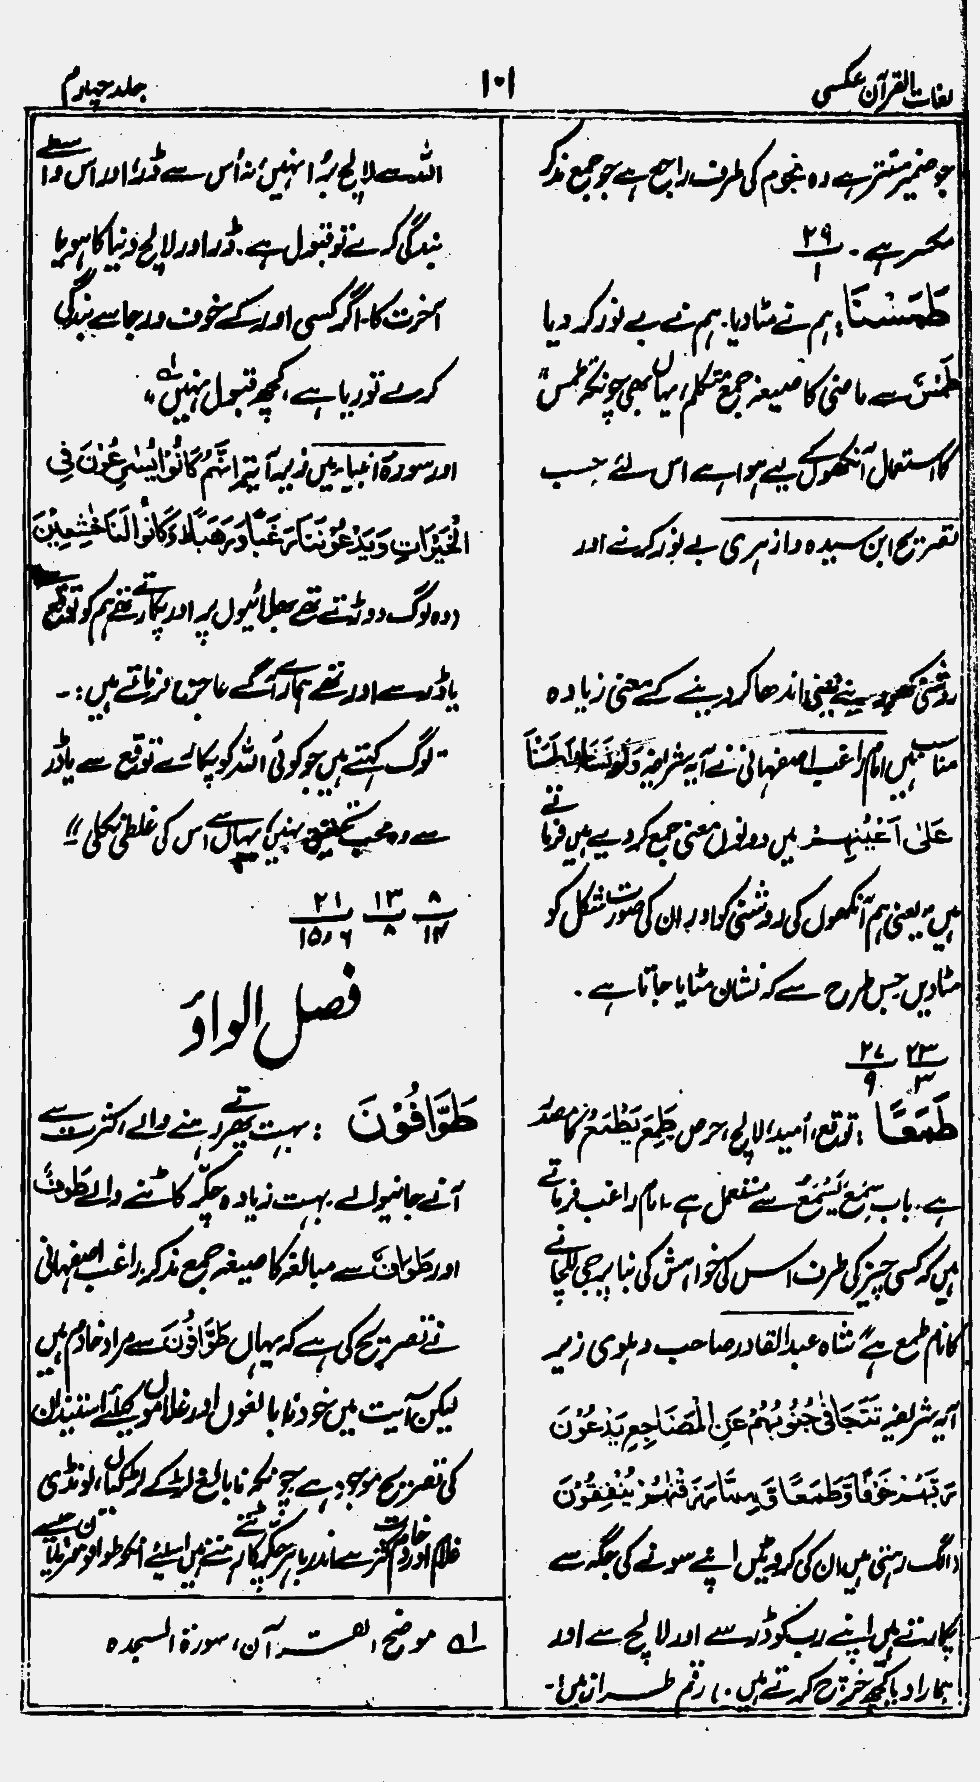 لغات القرآن عکسی
۱۰۱
جلد چہارم
جو ضمیر مستتر ہے وہ نجوم کی طرف راجع ہے جو جمع مذکر
مکسر ہے۔ ۲۹/۱
طَمَسْنَا: ہم نے مٹا دیا۔ ہم نے بے نور کر دیا
طَمْسٌ سے ماضی کا صیغہ جمع متکلم، یہاں بھی چونکہ طمس
کا استعمال آنکھوں کے لیے ہوا ہے اس لئے حسب
تصریح ابن سیدہ و ازہری بے نور کرنے اور
روشنی کھو دینے یعنی اندھا کر دینے کے معنی زیادہ
مناسب ہیں امام راغب اصفہانی نے آیہ شریفہ وَلَوْ نَشَاءُ لَطَمَسْنَا
عَلٰى اَعْيُنِهِمْ میں دونوں معنی جمع کر دیے ہیں فرماتے
ہیں "یعنی ہم آنکھوں کی روشنی کو اور ان کی صورت شکل کو
مٹا دیں جس طرح سے کہ نشان مٹایا جاتا ہے۔
۲۳/۳ ۲۷/۹
طَمَعًا: توقع، اُمید، لالچ، حرص طَمِعَ يَطْمَعُ کا مصدر
ہے۔ باب سَمِعَ يَسْمَعُ سے مستعمل ہے۔ امام راغب فرماتے
ہیں کہ کسی چیز کی طرف اس کی خواہش کی بنا پر جی للچانے
کا نام طمع ہے" شاہ عبدالقادر صاحب دہلوی زیر
آیہ شریفہ تَتَجَافٰى جُنُوْبُهُمْ عَنِ الْمَضَاجِعِ يَدْعُوْنَ
رَبَّهُمْ خَوْفًا وَّطَمَعًا وَّمِمَّا رَزَقْنٰهُمْ يُنْفِقُوْنَ
(الگ رہتی ہیں ان کی کروٹیں اپنے سونے کی جگہ سے
پکارتے ہیں اپنے رب کو ڈر سے اور لالچ سے اور
ہمارا دیا کچھ خرچ کرتے ہیں۔) رقم طراز ہیں:۔
اللہ سے لالچ بُرا نہیں، نہ اُس سے ڈر، اور اس واسطے
بندگی کرے تو قبول ہے۔ ڈر اور لالچ دنیا کا ہو یا
آخرت کا۔ اگر کسی اور کے خوف و رجا سے بندگی
کرے تو ریا ہے، کچھ قبول نہیں" لہ
اور سورہ انبیاء میں زیر آیتہ اِنَّهُمْ كَانُوْا يُسٰرِعُوْنَ فِي
الْخَيْرَاتِ وَيَدْعُوْنَنَا رَغَبًا وَّرَهَبًا وَكَانُوْا لَنَا خٰشِعِيْنَ
(وہ لوگ دوڑتے تھے بھلائیوں پر اور پکارتے تھے ہم کو توقع سے
یا ڈر سے اور تھے ہمارے آگے عاجز) فرماتے ہیں:۔
"لوگ کہتے ہیں جو کوئی اللہ کو پکارے توقع سے یا ڈر
سے وہ محب تحقیق نہیں، یہاں سے اس کی غلطی نکلی"
۸/۱۴ ۱۳/۸ ۲۱/۶،۱۵
فصل الواؤ
طَوَّافُوْنَ: بہت پھرتے رہنے والے، کثرت سے
آنے جانیوالے۔ بہت زیادہ چکر کاٹنے والے طَوفٌ
اور طَوَافٌ سے مبالغہ کا صیغہ جمع مذکر۔ راغب اصفہانی
نے تصریح کی ہے کہ یہاں طَوَّافُوْنَ سے مراد خادم ہیں
لیکن آیت میں خود نابالغوں اور غلاموں کیلئے استیذان
کی تصریح موجود ہے چونکہ نابالغ لڑکے لڑکیاں، لونڈی
غلام اور خادم کثرت سے اندر باہر چکر کاٹتے رہتے ہیں اسلئے انکو طوافون فرمایا
لہ موضح القرآن، سورۃ السجدہ